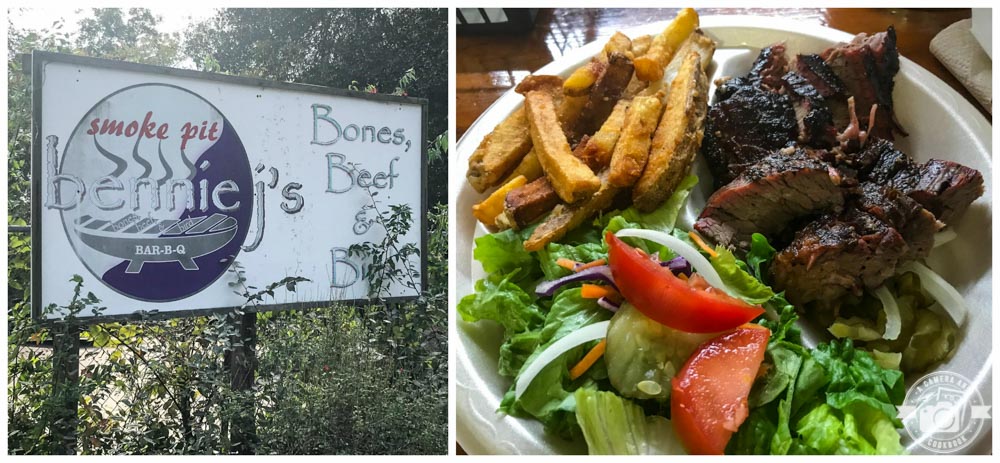 smoke pit
bennie j's
BAR-B-Q
Bones,
Beef
&
A CAMERA AND
COOKBOOK